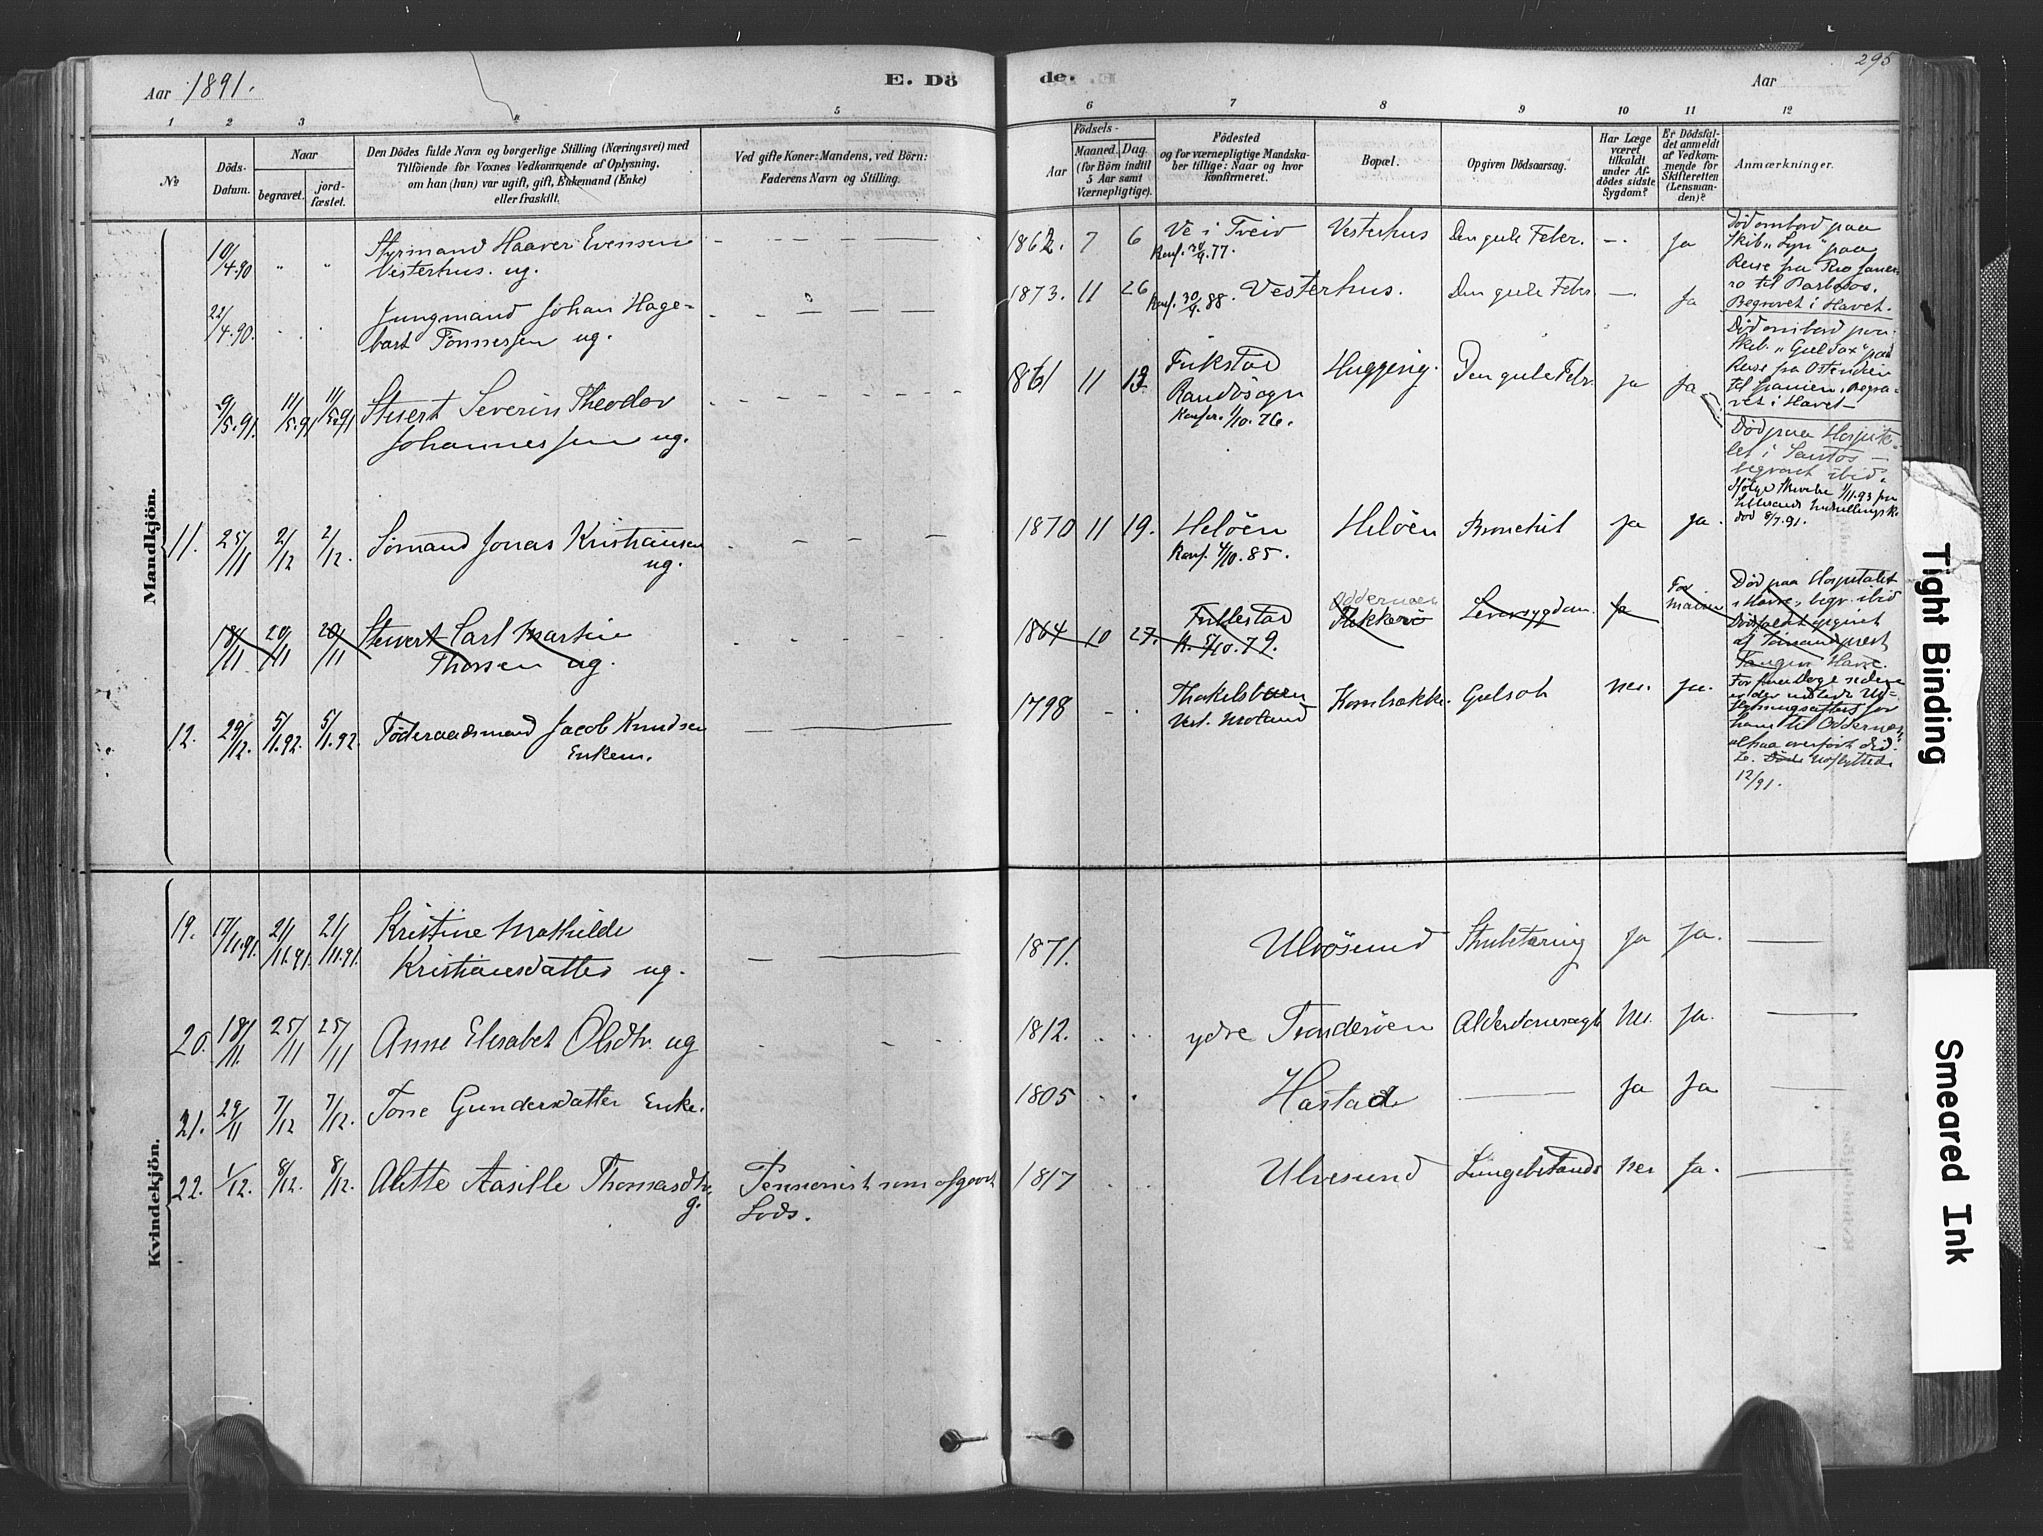 Aar 1891.
E. Dö
de.
Aar
295
1 2 3 4 5 6 7 8 9 10 11 12
No
Döds-
Datum.
Naar
begravet.
jord-
fæstet.
Den Dödes fulde Navn og borgerlige Stilling (Næringsvei) med
Tilföiende for Voxnes Vedkommende af Oplysning,
om han (hun) var ugift, gift, Enkemand (Enke)
eller fraskilt.
Ved gifte Koner: Mandens, ved Börn:
Faderens Navn og Stilling.
Födsels-
Aar
Maaned. Dag
(for Börn indtil
5 Aar samt
Værnepligtige).
Födested
og for værnepligtige Mandska-
ber tillige: Naar og hvor
konfirmeret.
Bopæl.
Opgiven Dödsaarsag.
Har Læge
været
tilkaldt
under Af-
dödes sidste
Sygdom?
Er Dödsfal-
det anmeldt
af Vedkom-
mende for
Skifteretten
(Lensman-
den)?
Anmærkninger.
Mandkjön.
10/4.90 " " Styrmand Haaver Evensen
Vesterhus. ug.
1862. 7 6 Ve i Tveid
Konf. 30/9.77.
Vesterhus Den gule Feber. — Ja
Död ombord paa
Skib "Lyn" paa
Reise fra Rio Janei-
ro til Barbados.
Begravet i Havet.
22/4.90. Jungmand Johan Hage-
bart Tönnessen ug.
1873. 11 26 Konf. 30/9.88. Vesterhus. Den gule Feber — Ja
Död ombord paa
Skib. "Guldax" paa
Reise fra Ostindien
til Spanien. Begra-
vet i Havet
9/5.91. 11/5.91 11/5.91 Stuert Severin Theodor
Johannessen ug.
1861 11 13 Frikstad
Randösogn
Konfir. 1/10.76.
Den gule Feber. ja Ja
Död paa Hospita-
let i Santos —
begravet ibid.
Ifölge Skrivelse 1/11.93 fra
död 8/7.91.
11. 25/11 2/12 2/12. Sömand Jonas Kristiansen
ug.
1870 11 19. Helöen
Konf. 4/10.85.
Helöen Bronchit Ja Ja.
18/11 20/11 20/11 Stuvert Carl Martin
Thorsen ug.
1864 10 27. Fuklestad
K. 5/10.79.
Oddernæs
Flekkerö
Leversygdom. Ja
Död paa Hospitalet
i Havre, begr. ibid
Dödsfaldet opgivet
af Sömandsprest
Tangen Havre.
12. 29/12. 5/1.92. 5/1.92. Föderaadsmand Jacob Knudsen
Enkem.
1798 Thorkelsbuen
Vest. Moland
Kornbrække. Gulsot Nei. Ja.
ham til Oddernæs,
altsaa overfört did.
12/91.
Kvindekjön.
19. 17/11.91. 21/11.91. 21/11.91. Kristine Mathilde
Kristiansdatter ug.
1871. Ulvösund Strubetæring Ja Ja.
20. 18/11 25/11 25/11 Anne Elisabet Olsdtr. ug
1812. ydre Tronderöen Alderdomssvagh. Nei. Ja.
21. 29/11 7/12 7/12. Tone Gundersdatter Enke.
1805 Hastad Ja Ja
22. 1/12. 8/12. 8/12. Alette Aasille Thomasdtr.
g.
Pensionist som afgaaet
Lods.
1817 Ulvesund Lungebetænds Nei Ja.
Tight Binding
Smeared Ink